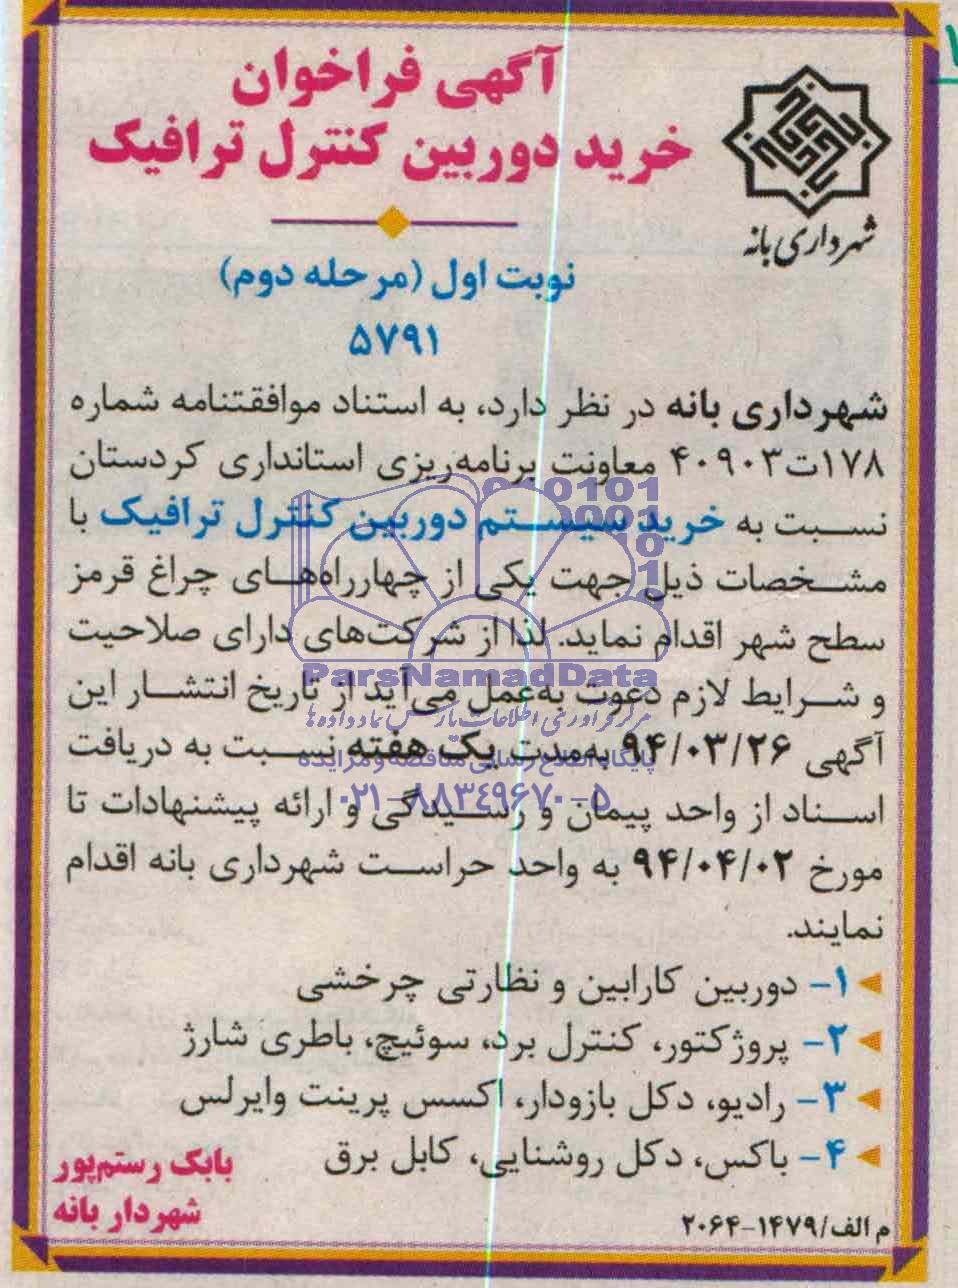 آگهی فراخوان
خرید دوربین کنترل ترافیک
شهرداری بانه
نوبت اول (مرحله دوم)
۵۷۹۱
شهرداری بانه در نظر دارد، به استناد موافقتنامه شماره
۱۷۸ت۴۰۹۰۳ معاونت برنامه‌ریزی استانداری کردستان
نسبت به خرید سیستم دوربین کنترل ترافیک با
مشخصات ذیل جهت یکی از چهارراه‌های چراغ قرمز
سطح شهر اقدام نماید. لذا از شرکت‌های دارای صلاحیت
و شرایط لازم دعوت به‌عمل می‌آید از تاریخ انتشار این
آگهی ۹۴/۰۳/۲۶ به‌مدت یک هفته نسبت به دریافت
اسناد از واحد پیمان و رسیدگی و ارائه پیشنهادات تا
مورخ ۹۴/۰۴/۰۲ به واحد حراست شهرداری بانه اقدام
نمایند.
۱- دوربین کارابین و نظارتی چرخشی
۲- پروژکتور، کنترل برد، سوئیچ، باطری شارژ
۳- رادیو، دکل بازودار، اکسس پرینت وایرلس
۴- باکس، دکل روشنایی، کابل برق
بابک رستم‌پور
شهردار بانه
م الف/۱۴۷۹-۲۰۶۴
ParsNamadData
مرکز فرآوری اطلاعات پارس نماد داده ها
پایگاه اطلاع رسانی مناقصه و مزایده
۰۲۱-۸۸۳۴۹۶۷۰-۵